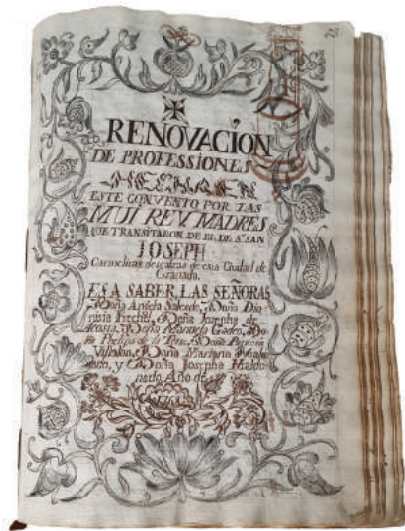 RENOVACION
DE PROFESSIONES
HECHAS EN
ESTE CONVENTO POR LAS
MUI REV MADRES
QUE TRANSITARON DE EL DE Sn. SAN
IOSEPH
Carmelitas descalzas de esta Ciudad de
Granada.
ES A SABER, LAS SEÑORAS
Doña Angela Salcedo, Doña Dio
nisia Pitchel, Doña Iozepha de
Acosta, Doña Manuela Godoy, Do
ña Phelipa de la Torre, Doña
Villalon, Doña Mariana
nado, y Doña Josepha Maldo
nado. Año de